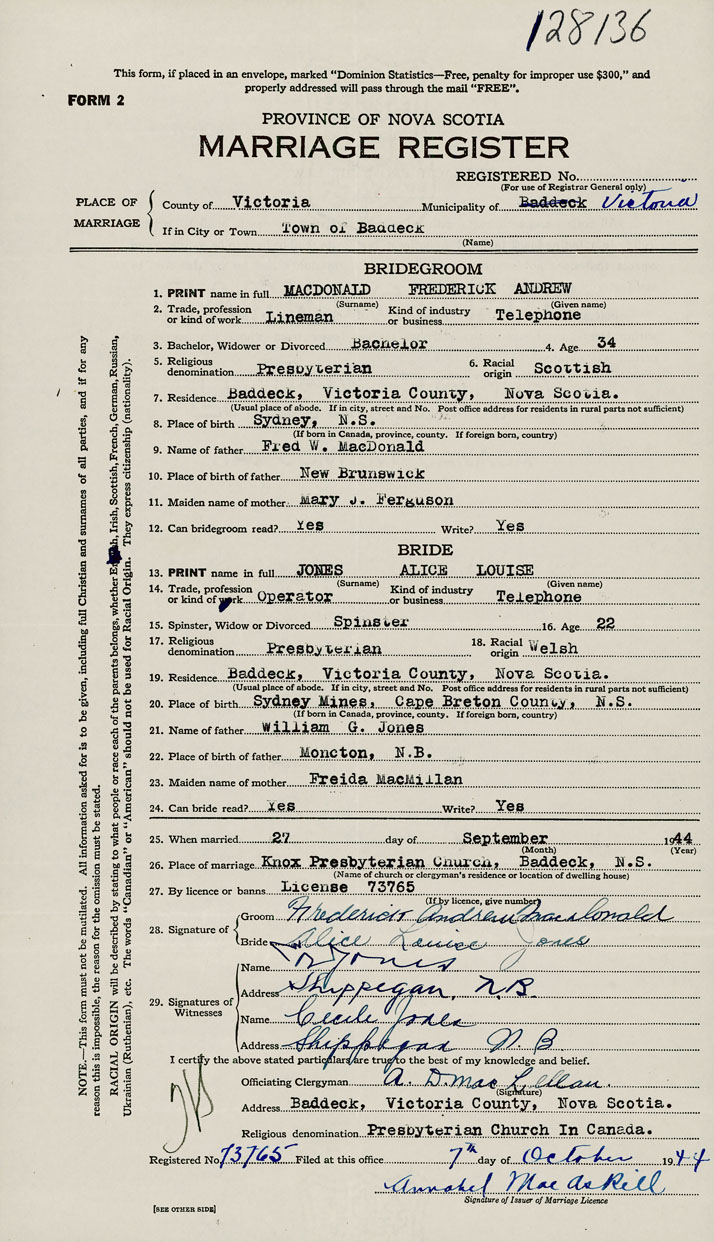 128136
This form, if placed in an envelope, marked "Dominion Statistics—Free, penalty for improper use $300," and
properly addressed will pass through the mail "FREE".
FORM 2
PROVINCE OF NOVA SCOTIA
MARRIAGE REGISTER
REGISTERED No.
(For use of Registrar General only)
PLACE OF MARRIAGE
County of Victoria Municipality of Baddeck Victoria
If in City or Town Town of Baddeck
(Name)
BRIDEGROOM
1. PRINT name in full MACDONALD FREDERICK ANDREW
(Surname) (Given name)
2. Trade, profession or kind of work Lineman Kind of industry or business Telephone
3. Bachelor, Widower or Divorced Bachelor 4. Age 34
5. Religious denomination Presbyterian 6. Racial origin Scottish
7. Residence Baddeck, Victoria County, Nova Scotia.
(Usual place of abode. If in city, street and No. Post office address for residents in rural parts not sufficient)
8. Place of birth Sydney, N.S.
(If born in Canada, province, county. If foreign born, country)
9. Name of father Fred W. MacDonald
10. Place of birth of father New Brunswick
11. Maiden name of mother Mary J. Ferguson
12. Can bridegroom read? Yes Write? Yes
BRIDE
13. PRINT name in full JONES ALICE LOUISE
(Surname) (Given name)
14. Trade, profession or kind of work Operator Kind of industry or business Telephone
15. Spinster, Widow or Divorced Spinster 16. Age 22
17. Religious denomination Presbyterian 18. Racial origin Welsh
19. Residence Baddeck, Victoria County, Nova Scotia.
(Usual place of abode. If in city, street and No. Post office address for residents in rural parts not sufficient)
20. Place of birth Sydney Mines, Cape Breton County, N.S.
(If born in Canada, province, county. If foreign born, country)
21. Name of father William G. Jones
22. Place of birth of father Moncton, N.B.
23. Maiden name of mother Freida MacMillan
24. Can bride read? Yes Write? Yes
25. When married 27 day of September 1944
(Month) (Year)
26. Place of marriage Knox Presbyterian Church, Baddeck, N.S.
(Name of church or clergyman's residence or location of dwelling house)
27. By licence or banns License 73765
(If by licence, give number)
28. Signature of
Groom Frederick Andrew MacDonald
Bride Alice Louise Jones
29. Signatures of Witnesses
Name Jones
Address Shippegan, N.B.
Name Cecile Jones
Address Shippegan N B
I certify the above stated particulars are true to the best of my knowledge and belief.
Officiating Clergyman A. D. MacLellan.
(Signature)
Address Baddeck, Victoria County, Nova Scotia.
Religious denomination Presbyterian Church In Canada.
Registered No. 73765 Filed at this office 7th day of October 1944
Annabel MacAskill
Signature of Issuer of Marriage Licence
[SEE OTHER SIDE]
NOTE.—This form must not be mutilated. All information asked for is to be given, including full Christian and surnames of all parties, and if for any
reason this is impossible, the reason for the omission must be stated.
RACIAL ORIGIN will be described by stating to what people or race each of the parents belongs, whether English, Irish, Scottish, French, German, Russian,
Ukrainian (Ruthenian), etc. The words "Canadian" or "American" should not be used for Racial Origin. They express citizenship (nationality).